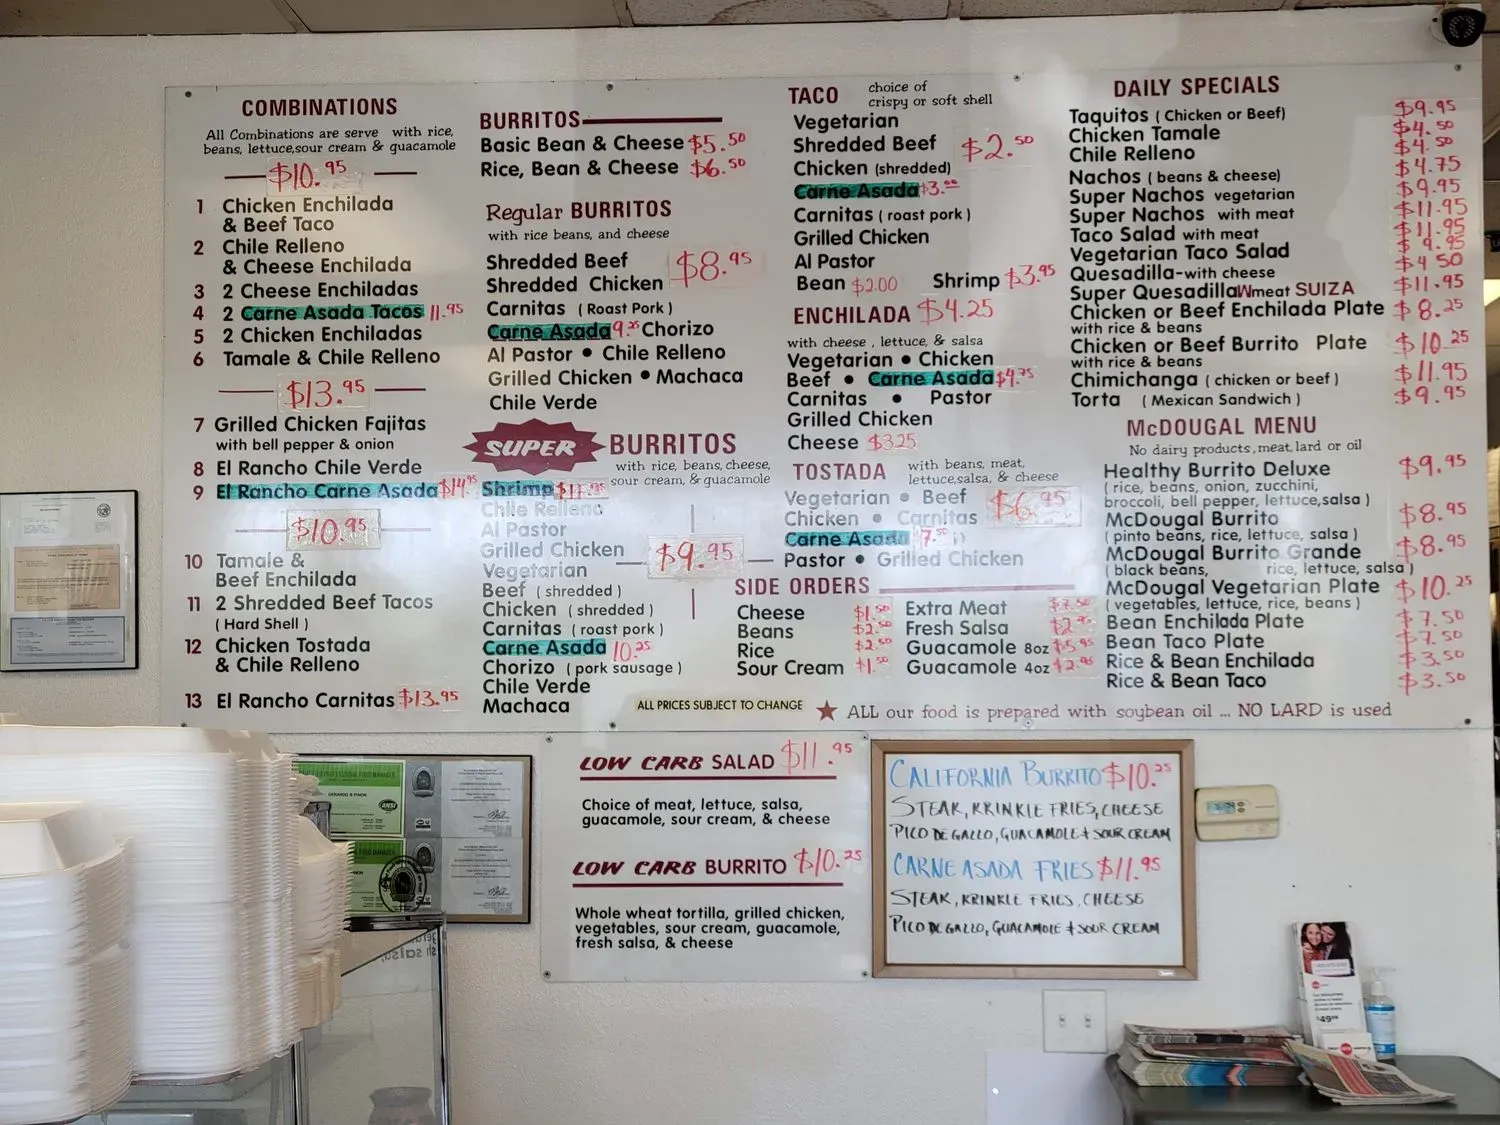 COMBINATIONS
All Combinations are serve with rice,
beans, lettuce,sour cream & guacamole
$10.95
1 Chicken Enchilada
& Beef Taco
2 Chile Relleno
& Cheese Enchilada
3 2 Cheese Enchiladas
4 2 Carne Asada Tacos 11.95
5 2 Chicken Enchiladas
6 Tamale & Chile Relleno
$13.95
7 Grilled Chicken Fajitas
with bell pepper & onion
8 El Rancho Chile Verde
9 El Rancho Carne Asada $14.95
$10.95
10 Tamale &
Beef Enchilada
11 2 Shredded Beef Tacos
( Hard Shell )
12 Chicken Tostada
& Chile Relleno
13 El Rancho Carnitas $13.95
BURRITOS
Basic Bean & Cheese $5.50
Rice, Bean & Cheese $6.50
Regular BURRITOS
with rice beans, and cheese
Shredded Beef
$8.95
Shredded Chicken
Carnitas ( Roast Pork )
Carne Asada 9.25 Chorizo
Al Pastor • Chile Relleno
Grilled Chicken • Machaca
Chile Verde
SUPER BURRITOS
with rice, beans, cheese,
sour cream, & guacamole
Shrimp $11.95
Chile Relleno
Al Pastor
Grilled Chicken
$9.95
Vegetarian
Beef ( shredded )
Chicken ( shredded )
Carnitas ( roast pork )
Carne Asada 10.25
Chorizo ( pork sausage )
Chile Verde
Machaca
TACO choice of
crispy or soft shell
Vegetarian
Shredded Beef $2.50
Chicken (shredded)
Carne Asada $3.00
Carnitas ( roast pork )
Grilled Chicken
Al Pastor
Bean $2.00 Shrimp $3.95
ENCHILADA $4.25
with cheese , lettuce, & salsa
Vegetarian • Chicken
Beef • Carne Asada $4.75
Carnitas • Pastor
Grilled Chicken
Cheese $3.25
TOSTADA with beans, meat,
lettuce,salsa, & cheese
Vegetarian • Beef $6.95
Chicken • Carnitas
Carne Asada 7.50
Pastor • Grilled Chicken
SIDE ORDERS
Cheese $1.50
Beans $2.50
Rice $2.50
Sour Cream $1.50
Extra Meat
Fresh Salsa
Guacamole 8oz $5.95
Guacamole 4oz $2.95
ALL PRICES SUBJECT TO CHANGE
ALL our food is prepared with soybean oil ... NO LARD is used
DAILY SPECIALS
Taquitos ( Chicken or Beef) $9.95
Chicken Tamale $4.50
Chile Relleno $4.50
Nachos ( beans & cheese) $4.75
Super Nachos vegetarian $9.95
Super Nachos with meat $11.95
Taco Salad with meat $11.95
Vegetarian Taco Salad $9.95
Quesadilla-with cheese $4 50
Super Quesadilla Wmeat SUIZA $11.95
Chicken or Beef Enchilada Plate $8.25
with rice & beans
Chicken or Beef Burrito Plate $10 25
with rice & beans
Chimichanga ( chicken or beef ) $11.95
Torta ( Mexican Sandwich ) $9.95
McDOUGAL MENU
No dairy products,meat,lard or oil
Healthy Burrito Deluxe $9.95
( rice, beans, onion, zucchini,
broccoli, bell pepper, lettuce,salsa )
McDougal Burrito $8.95
( pinto beans, rice, lettuce, salsa )
McDougal Burrito Grande $8.95
( black beans, rice, lettuce, salsa )
McDougal Vegetarian Plate $10.25
( vegetables, lettuce, rice, beans )
Bean Enchilada Plate $7.50
Bean Taco Plate $7.50
Rice & Bean Enchilada $3.50
Rice & Bean Taco $3.50
LOW CARB SALAD $11.95
Choice of meat, lettuce, salsa,
guacamole, sour cream, & cheese
LOW CARB BURRITO $10.25
Whole wheat tortilla, grilled chicken,
vegetables, sour cream, guacamole,
fresh salsa, & cheese
CALIFORNIA BURRITO $10.25
STEAK, KRINKLE FRIES, CHEESE
PICO DE GALLO, GUACAMOLE + SOUR CREAM
CARNE ASADA FRIES $11.95
STEAK, KRINKLE FRIES, CHEESE
PICO DE GALLO, GUACAMOLE + SOUR CREAM
GERARDO B PINON
ANSI
$49